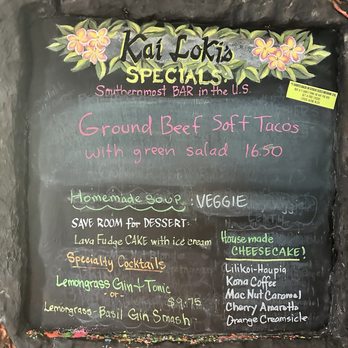 Kai Lokis
SPECIALS:
Southernmost BAR in the U.S.
Ground Beef Soft Tacos
with green salad 16.50
Homemade Soup: VEGGIE
SAVE ROOM for DESSERT:
Lava Fudge CAKE with ice cream
Specialty Cocktails
Lemongrass Gin & Tonic
-or-
$9.75
Lemongrass-Basil Gin Smash
Housemade
CHEESECAKE!
Lilikoi-Haupia
Kona Coffee
Mac Nut Caramel
Cherry Amaretto
Orange Creamsicle